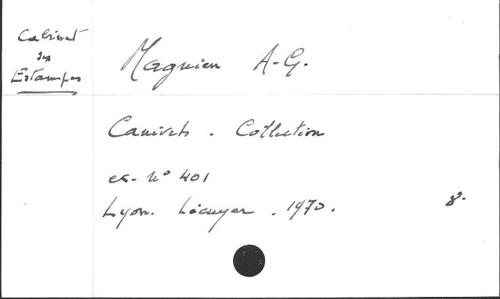 Cabinet
des
Estampes
Magnien A-G.
Canivets. Collection
ex- N° 401
Lyon. Lécuyer. 1970. 8°.